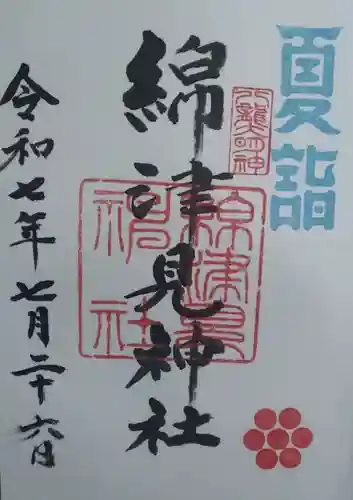 夏詣
八龍明神
綿津見神社
綿津見神社
令和七年七月二十六日